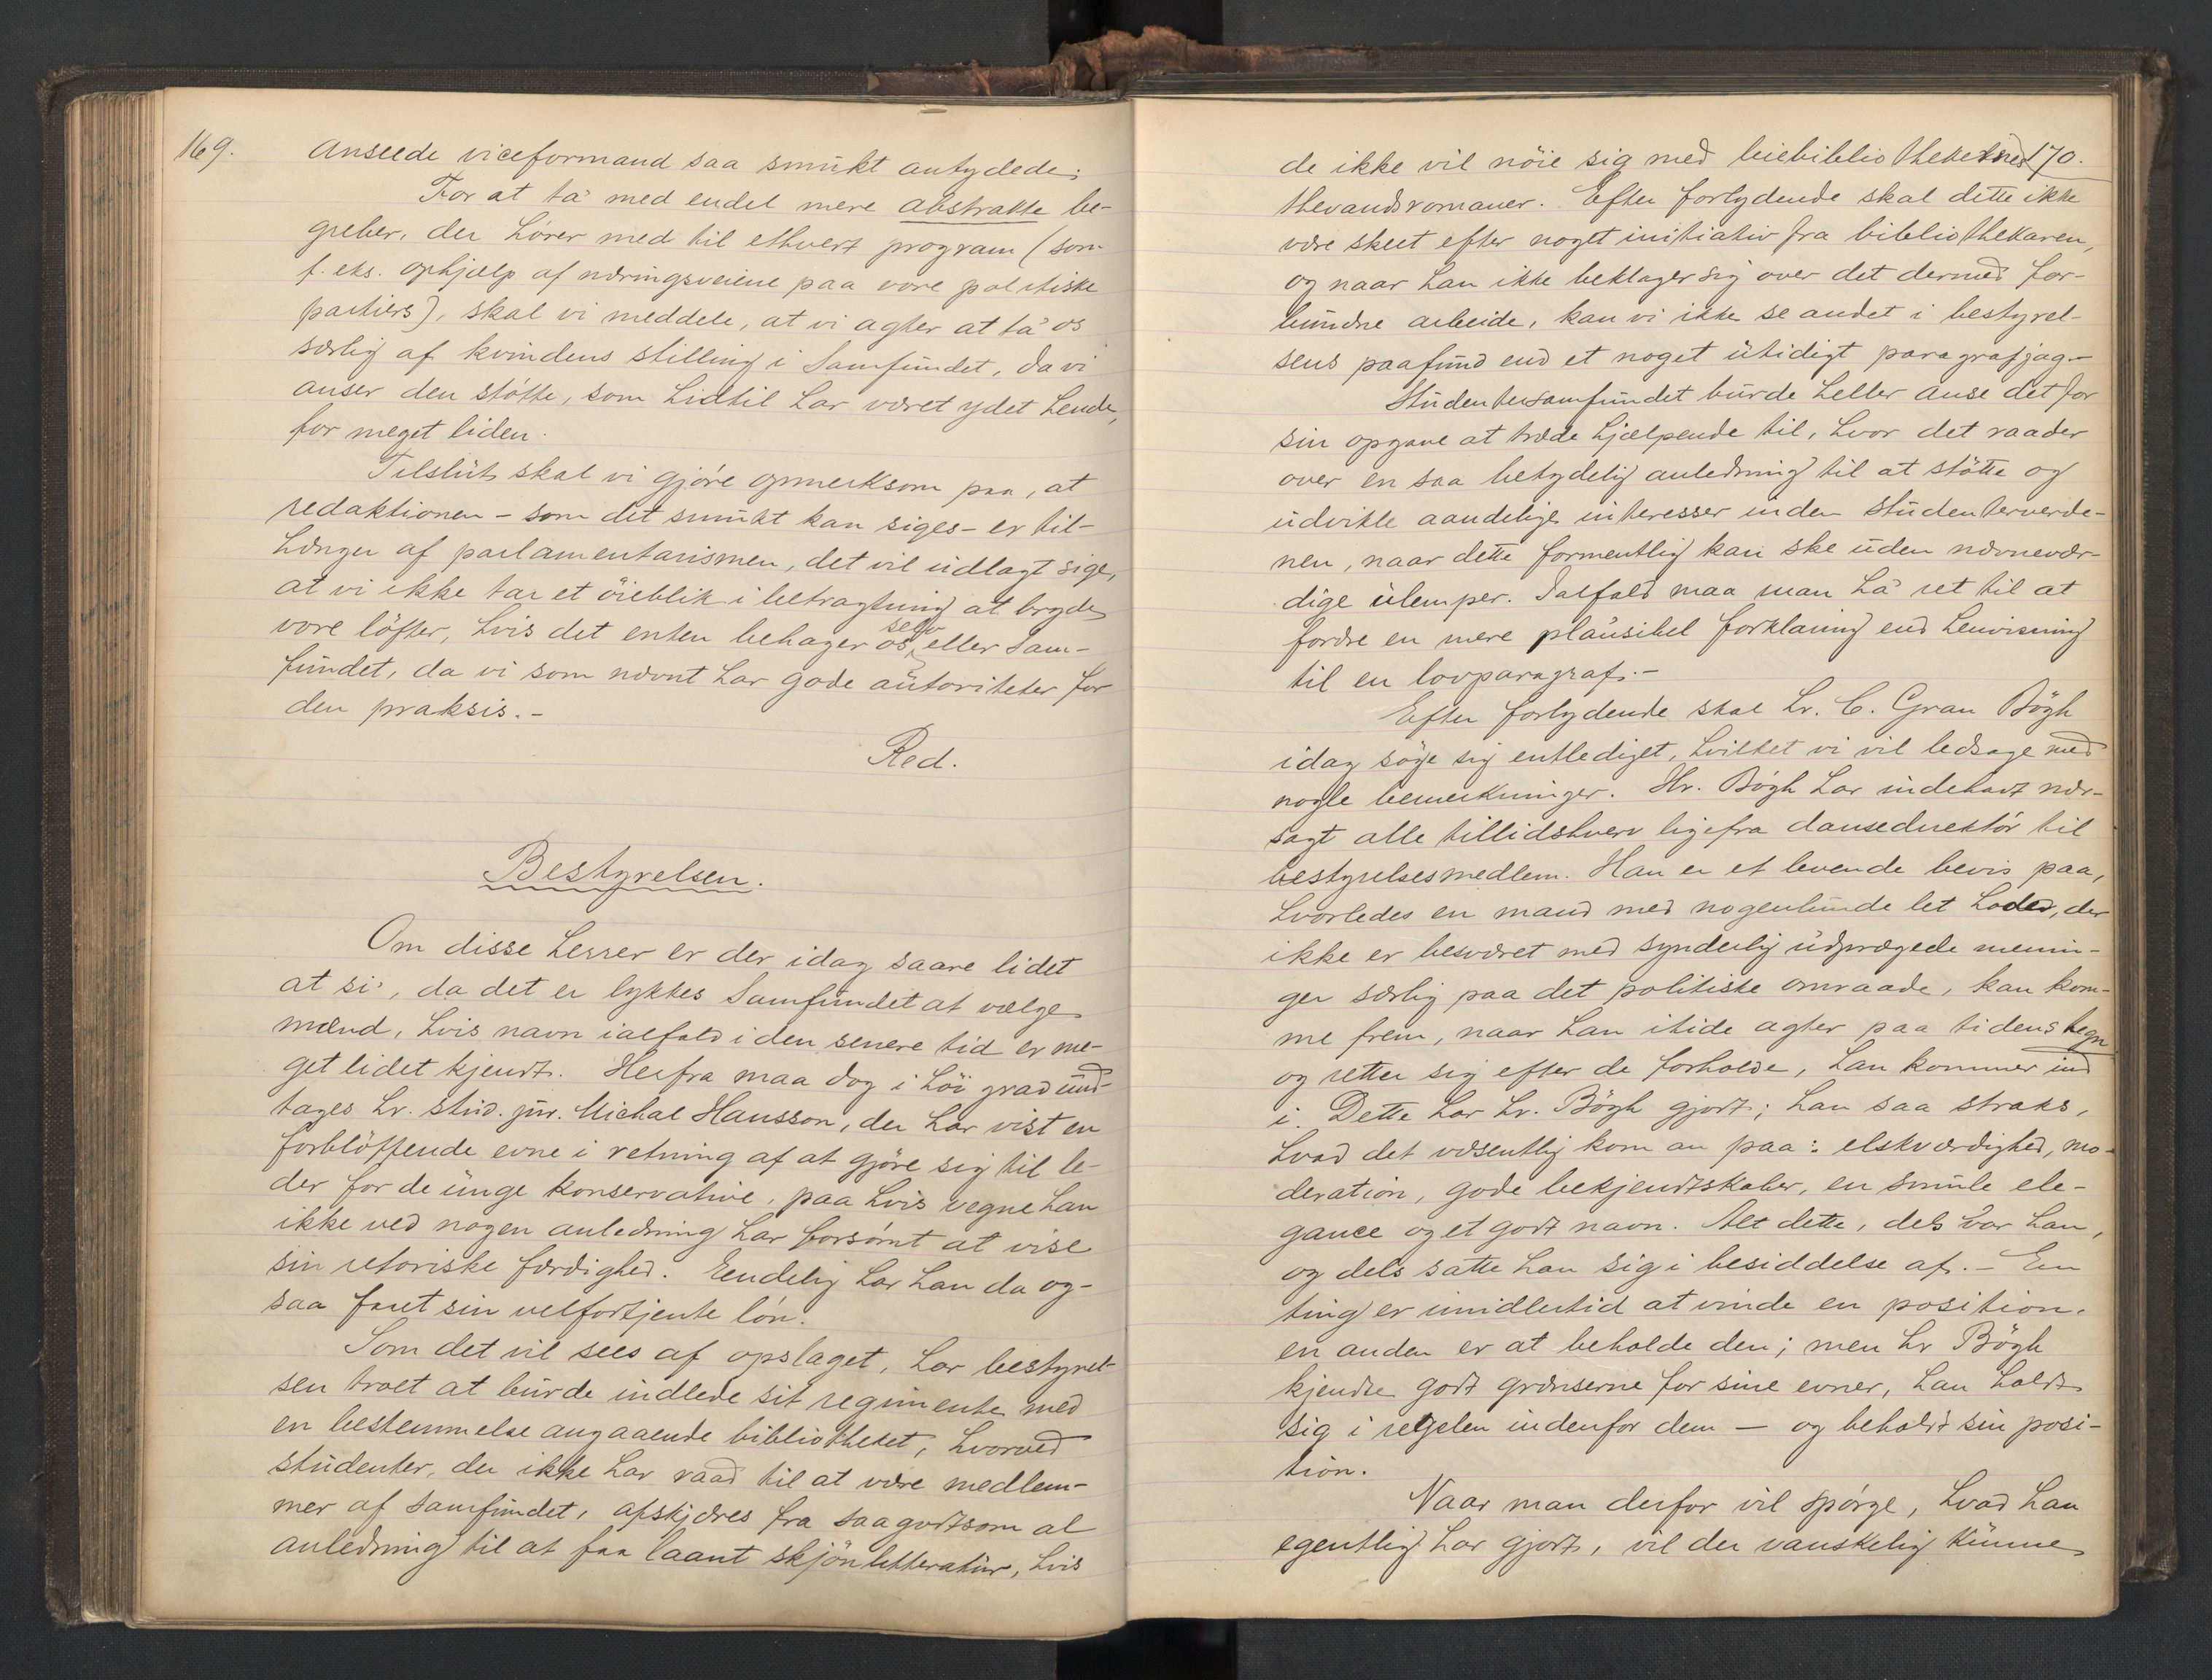 169.
Anseede viceformand saa smukt antydede:
For at ta' med endel mere abstrakte be-
greber, der hører med til ethvert program (som
f. eks. ophjælp af næringsveiene paa vore politiske
partiers), skal vi meddele, at vi agter at ta' os
særlig af kvindens stilling i Samfundet, da vi
anser den støtte, som hidtil har været ydet hende,
for meget liden.
Tilslut skal vi gjøre opmerksom paa, at
redaktionen – som det smukt kan siges – er til-
hænger af parlamentarismen, det vil udlagt sige,
at vi ikke tar et öieblik i betragtning at bryde
vore löfter, hvis det enten behager os selv eller Sam-
fundet, da vi som nævnt har gode autoriteter for
den praksis. –
Red.
Bestyrelsen.
Om disse herrer er der idag saare lidet
at si', da det er lykkes Samfundet at vælge
mænd, hvis navn ialfald i den senere tid er me-
get lidet kjendt. Herfra maa dog i høi grad und-
tages hr. stud. jur. Michal Hansson, der har vist en
forblöffende evne i retning af at gjöre sig til le-
der for de unge konservative, paa hvis vegne han
ikke ved nogen anledning har forsømt at vise
sin retoriske færdighed. Eendelig har han da og-
saa faaet sin velfortjente løn.
Som det vil sees af opslaget, har bestyrel-
sen troet at burde indlede sit regimente med
en bestemmelse angaaende bibliotheket, hvorved
studenter, der ikke har raad til at være medlem-
mer af samfundet, afskjæres fra saagodtsom al
anledning til at faa laant skjönlitteratur, hvis
170.
de ikke vil nöie sig med leiebibliothekernes
thevandsromaner. Efter forlydende skal dette ikke
være skeet efter noget initiativ fra bibliothekaren,
og naar han ikke beklager sig over det dermed for-
bundne arbeide, kan vi ikke se andet i bestyrel-
sens paafund end et noget utidigt paragrafjag. –
Studentersamfundet burde heller anse det for
sin opgave at træde hjælpende til, hvor det raader
over en saa betydelig anledning til at stötte og
udvikle aandelige interesser inden studenterverde-
nen, naar dette formentlig kan ske uden nævnevær-
dige ulemper. Ialfald maa man ha' ret til at
fordre en mere plausibel forklaring end henvisning
til en lovparagraf. –
Efter forlydende skal hr. C. Gran Bögh
idag søge sig entlediget, hvilket vi vil ledsage med
nogle bemerkninger. Hr. Bögh har indehavt nær-
sagt alle tillidshverv ligefra dansedirektör til
bestyrelsesmedlem. Han er et levende bevis paa,
hvorledes en mand med nogenlunde let hoded, der
ikke er besværet med synderlig udprægede menin-
ger særlig paa det politiske omraade, kan kom-
me frem, naar han itide agter paa tidens tegn
og retter sig efter de forholde, han kommer ind
i. Dette har hr. Bögh gjort; han saa straks,
hvad det væsentlig kom an paa: elskværdighed, mo-
deration, gode bekjendtskaber, en smule ele-
gance og et godt navn. Alt dette, dels var han,
og dels satte han sig i besiddelse af. – En
ting er imidlertid at vinde en position,
en anden er at beholde den; men hr Bögh
kjendte godt grænserne for sine evner, han holdt
sig i regelen indenfor dem – og beholdt sin posi-
tion.
Naar man derfor vil spörge, hvad han
egentlig har gjort, vil der vanskelig kunne